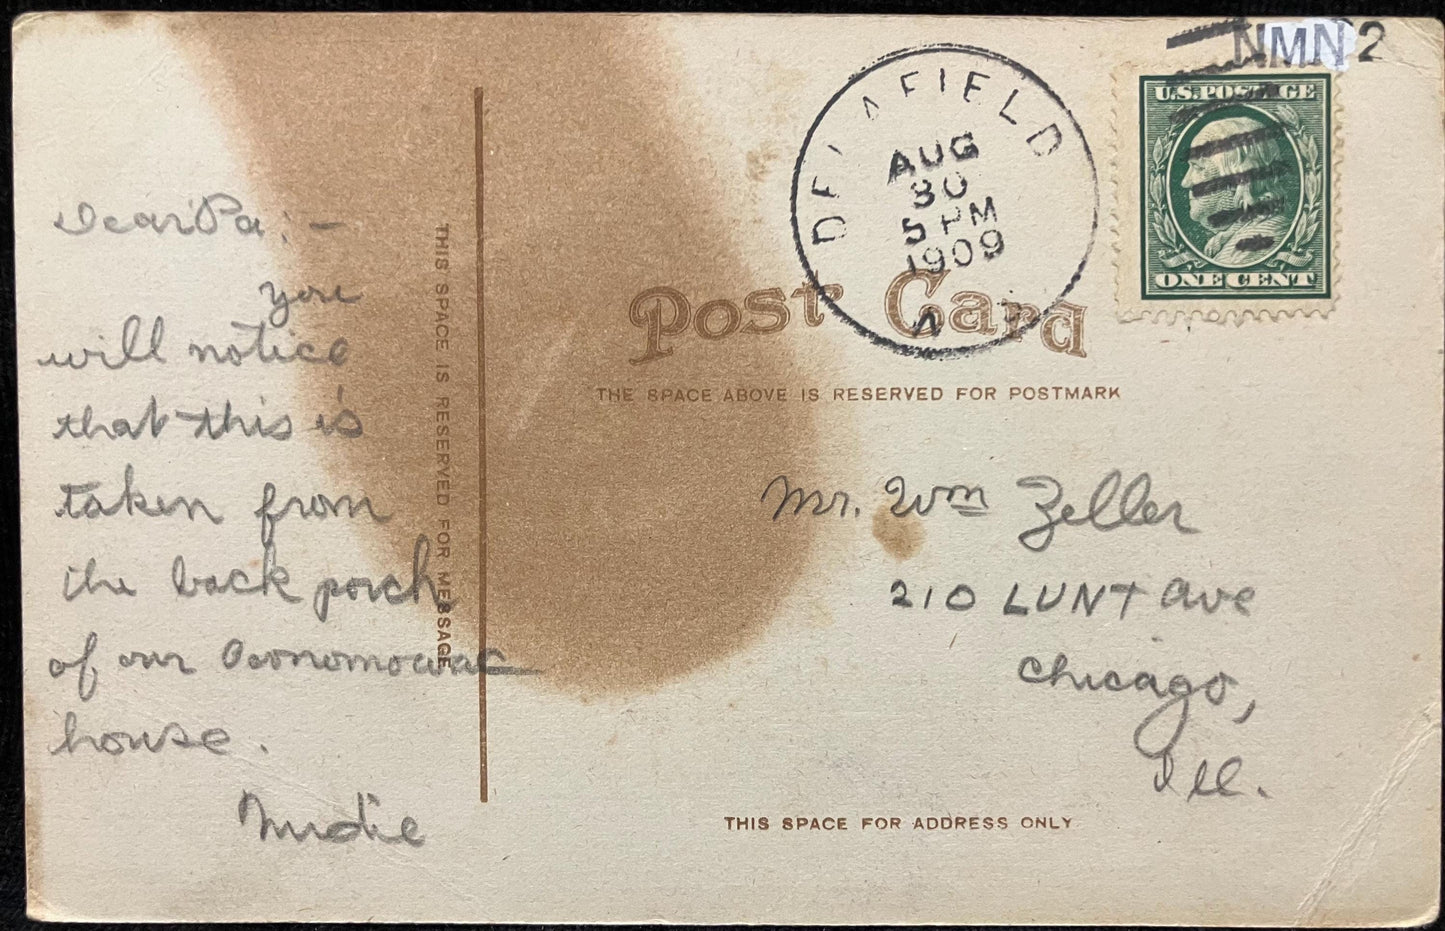 NMN 2
U.S. POSTAGE
ONE CENT
DELAFIELD
AUG
30
5 PM
1909
Post Card
THE SPACE ABOVE IS RESERVED FOR POSTMARK
THIS SPACE IS RESERVED FOR MESSAGE
Dear Pa; —
you
will notice
that this is
taken from
the back porch
of our Oconomowac
house.
Mr. Wm Zeller
210 LUNT Ave
Chicago,
Ill.
THIS SPACE FOR ADDRESS ONLY